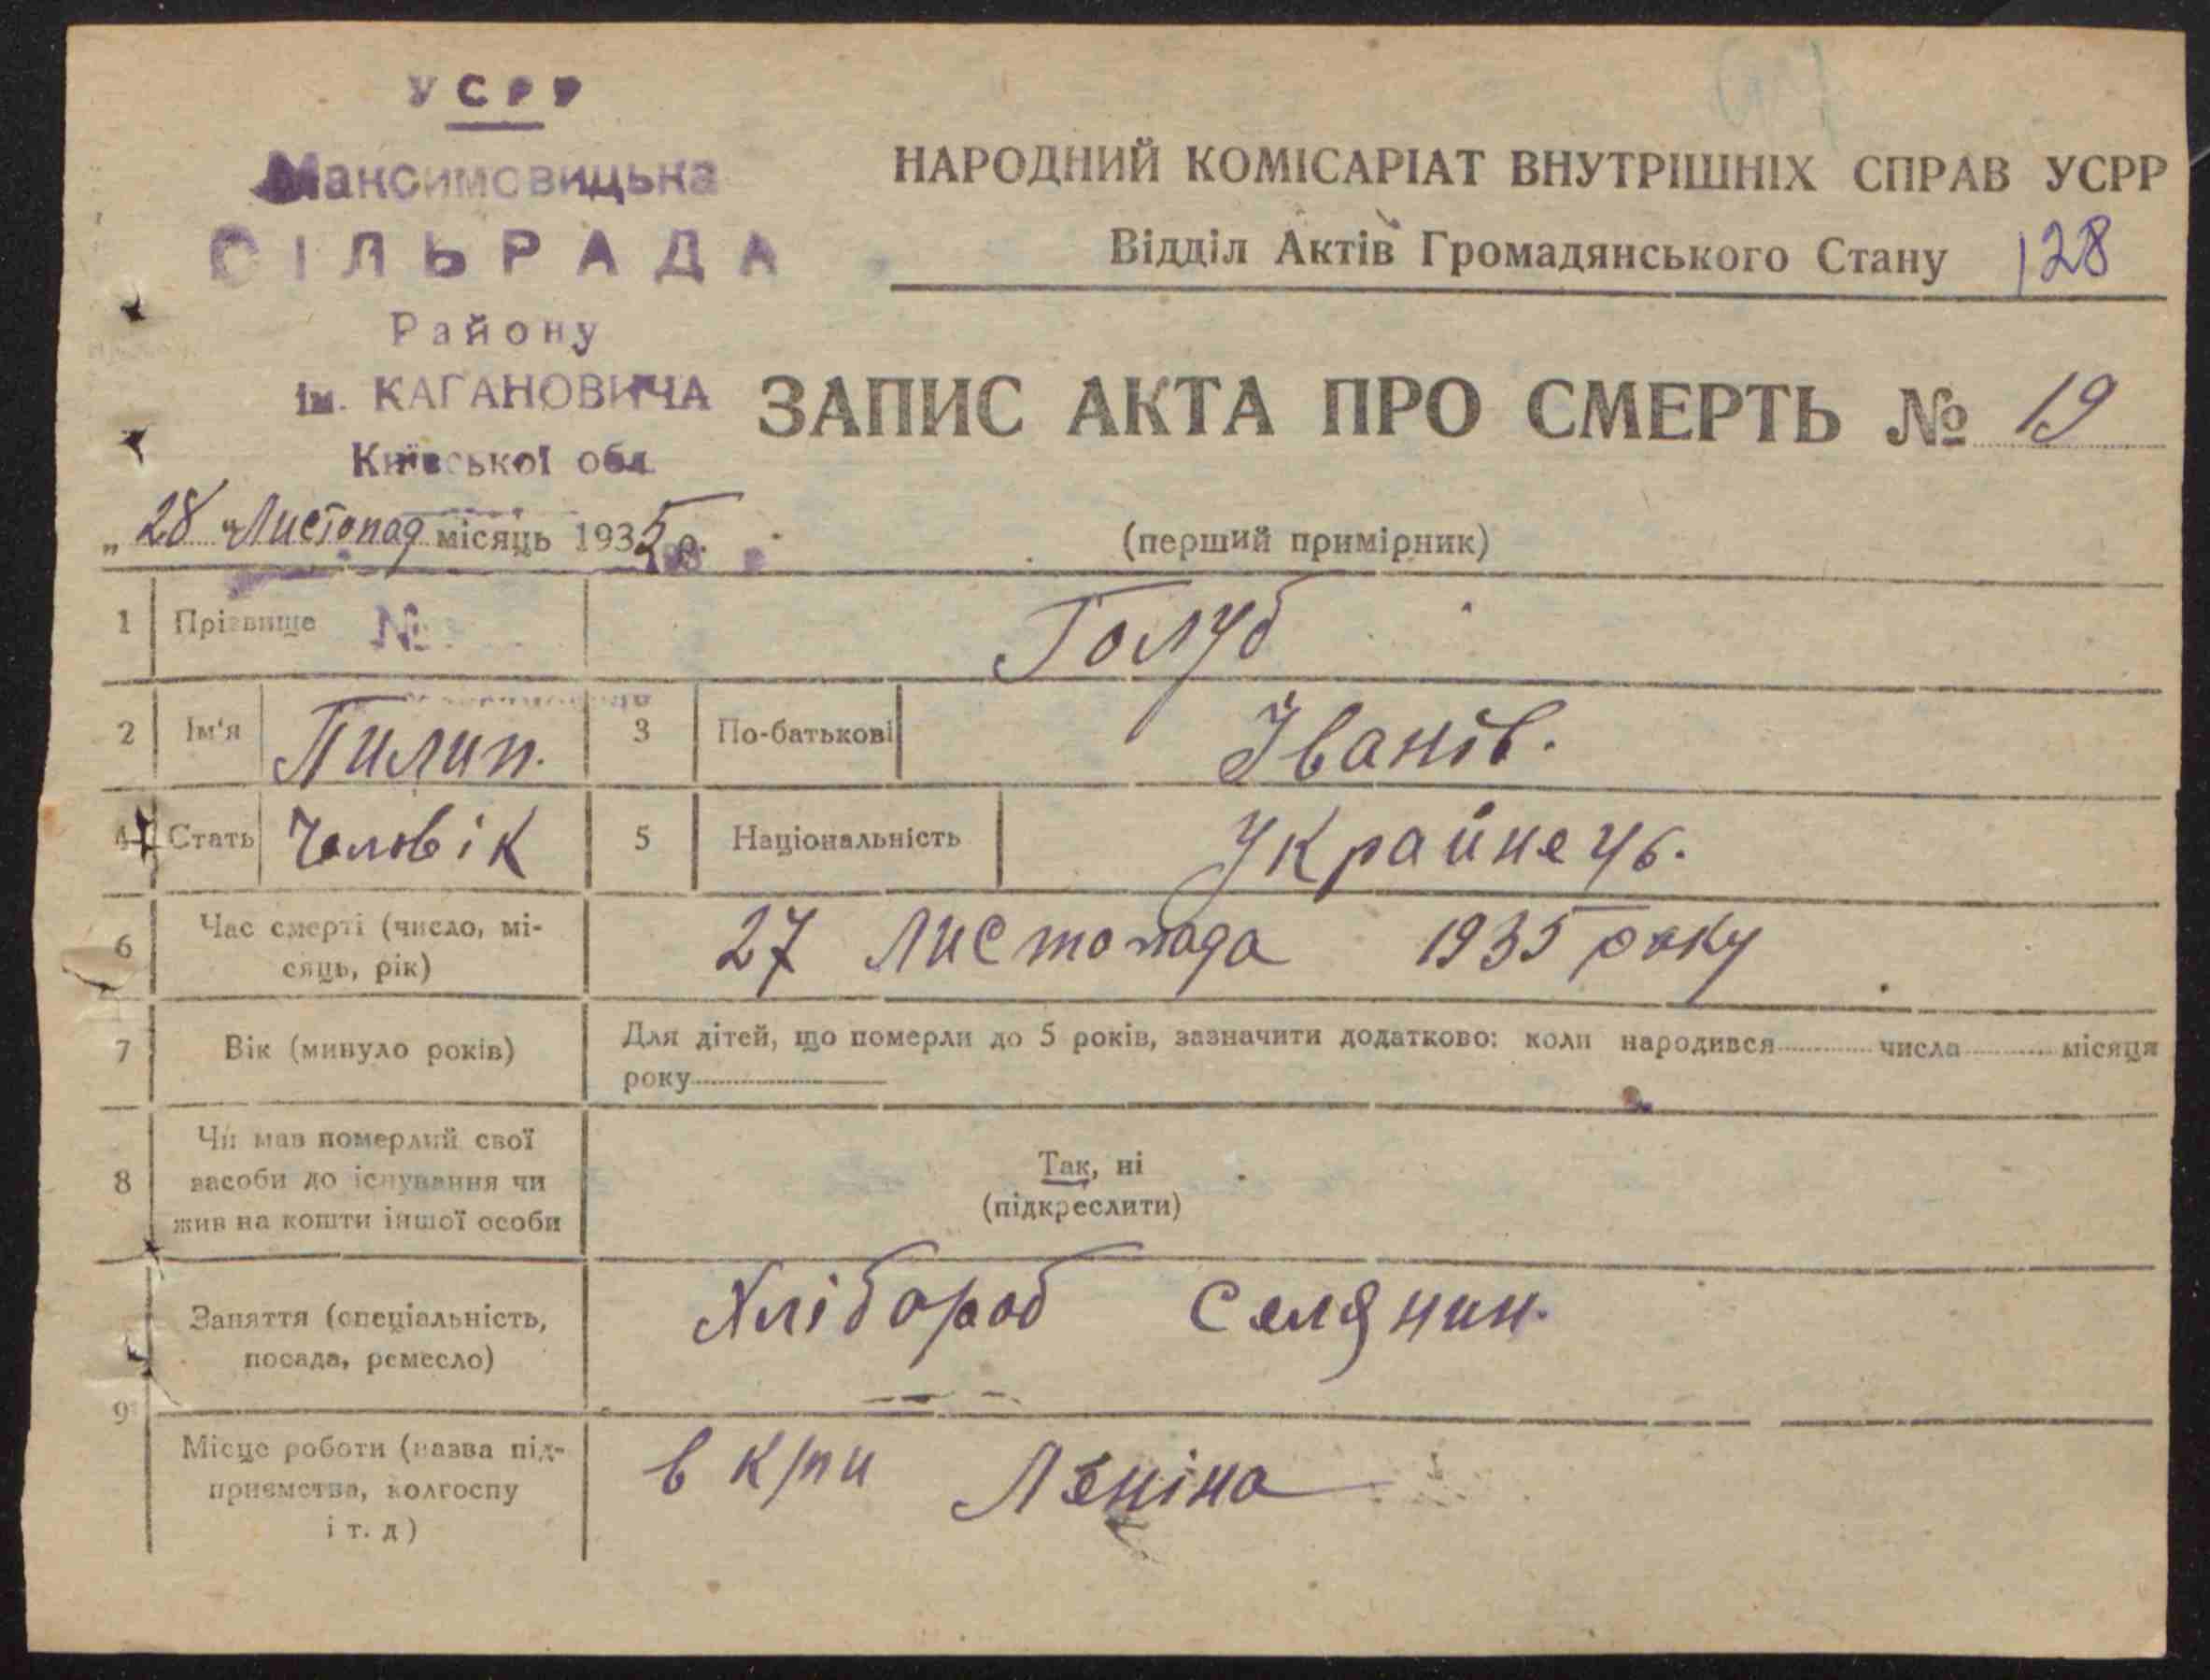 УСРР
Максимовицька
СІЛЬРАДА
Району
ім. КАГАНОВИЧА
Київської обл.
НАРОДНИЙ КОМІСАРІАТ ВНУТРІШНІХ СПРАВ УСРР
Відділ Актів Громадянського Стану 128
ЗАПИС АКТА ПРО СМЕРТЬ № 19
„28" Листопад місяць 1935 р.
(перший примірник)
1 Прізвище № Голуб
2 Ім'я Пилип. 3 По-батькові Іванів.
4 Стать Чоловік 5 Національність Украйнець.
6 Час смерті (число, мі-
сяць, рік) 27 листопада 1935 року
7 Вік (минуло років) Для дітей, що померли до 5 років, зазначити додатково: коли народився числа місяця
року
8 Чи мав померлий свої
засоби до існування чи
жив на кошти іншої особи
Так, ні
(підкреслити)
9 Заняття (спеціальність,
посада, ремесло) Хлібороб Селянин.
Місце роботи (назва під-
приємства, колгоспу
і т. д)
в к/пи Леніна